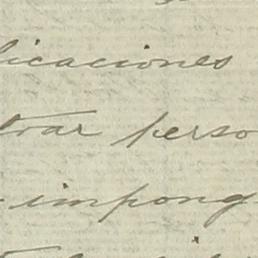 licaciones
trar perso
impong